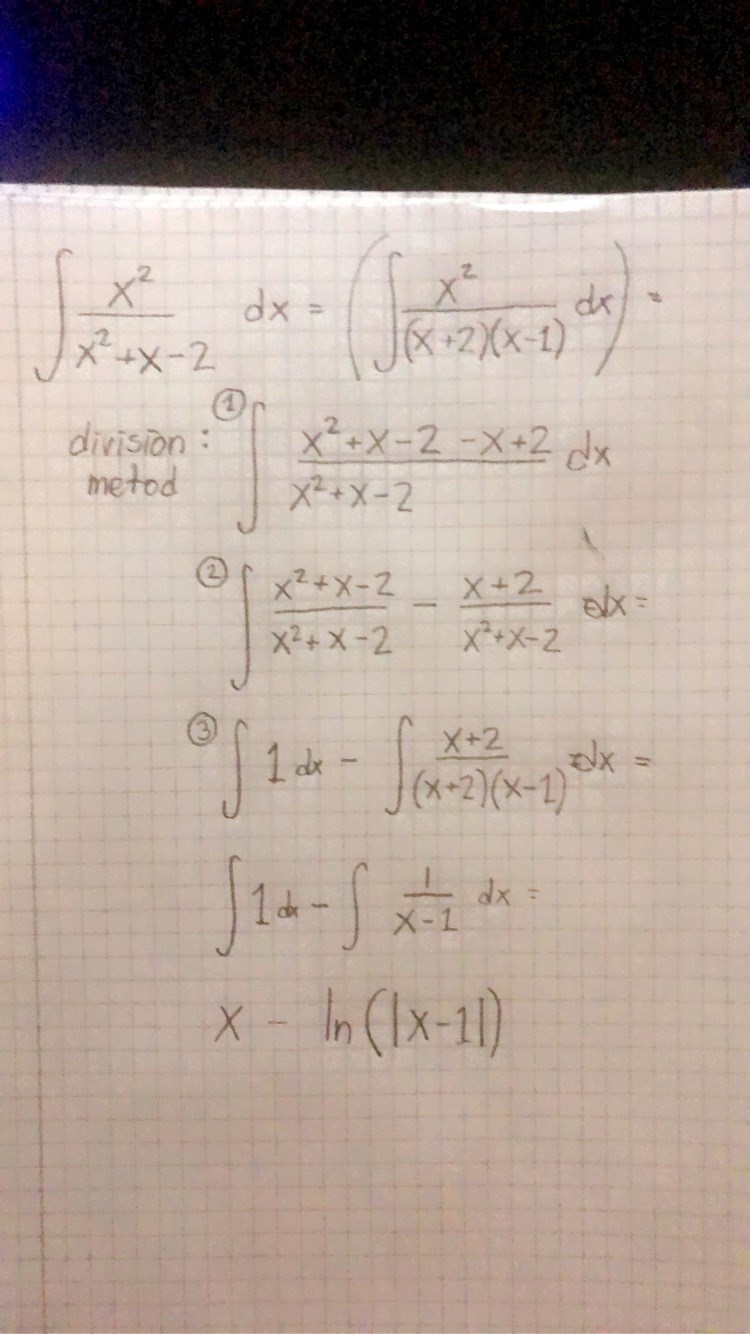 ∫ x²/(x²+x-2) dx = (∫ x²/((x+2)(x-1)) dx) =
division metod : ① ∫ (x²+x-2-x+2)/(x²+x-2) dx
② ∫ (x²+x-2)/(x²+x-2) - (x+2)/(x²+x-2) dx =
③ ∫ 1 dx - ∫ (x+2)/((x+2)(x-1)) dx =
∫ 1 dx - ∫ 1/(x-1) dx =
x - ln(|x-1|)